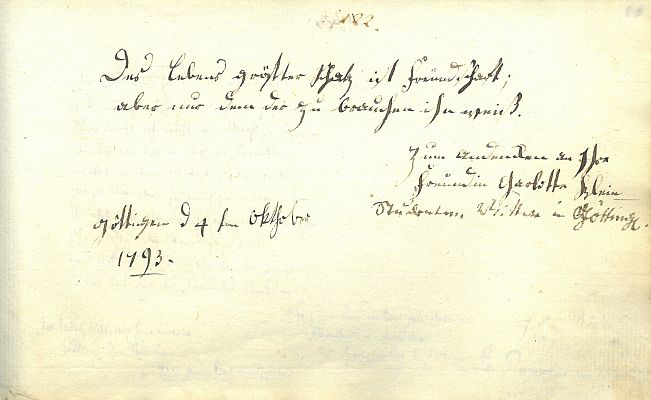 182.
Des Lebens größter Schatz ist Freundschaft;
aber nur dem der zu brauchen ihn weiß.
Zum Andencken an Ihre
Freundin Charlotte Klein
Studenten Wittwe in Götting.
Göttigen d 4 ten Oktober
1793.